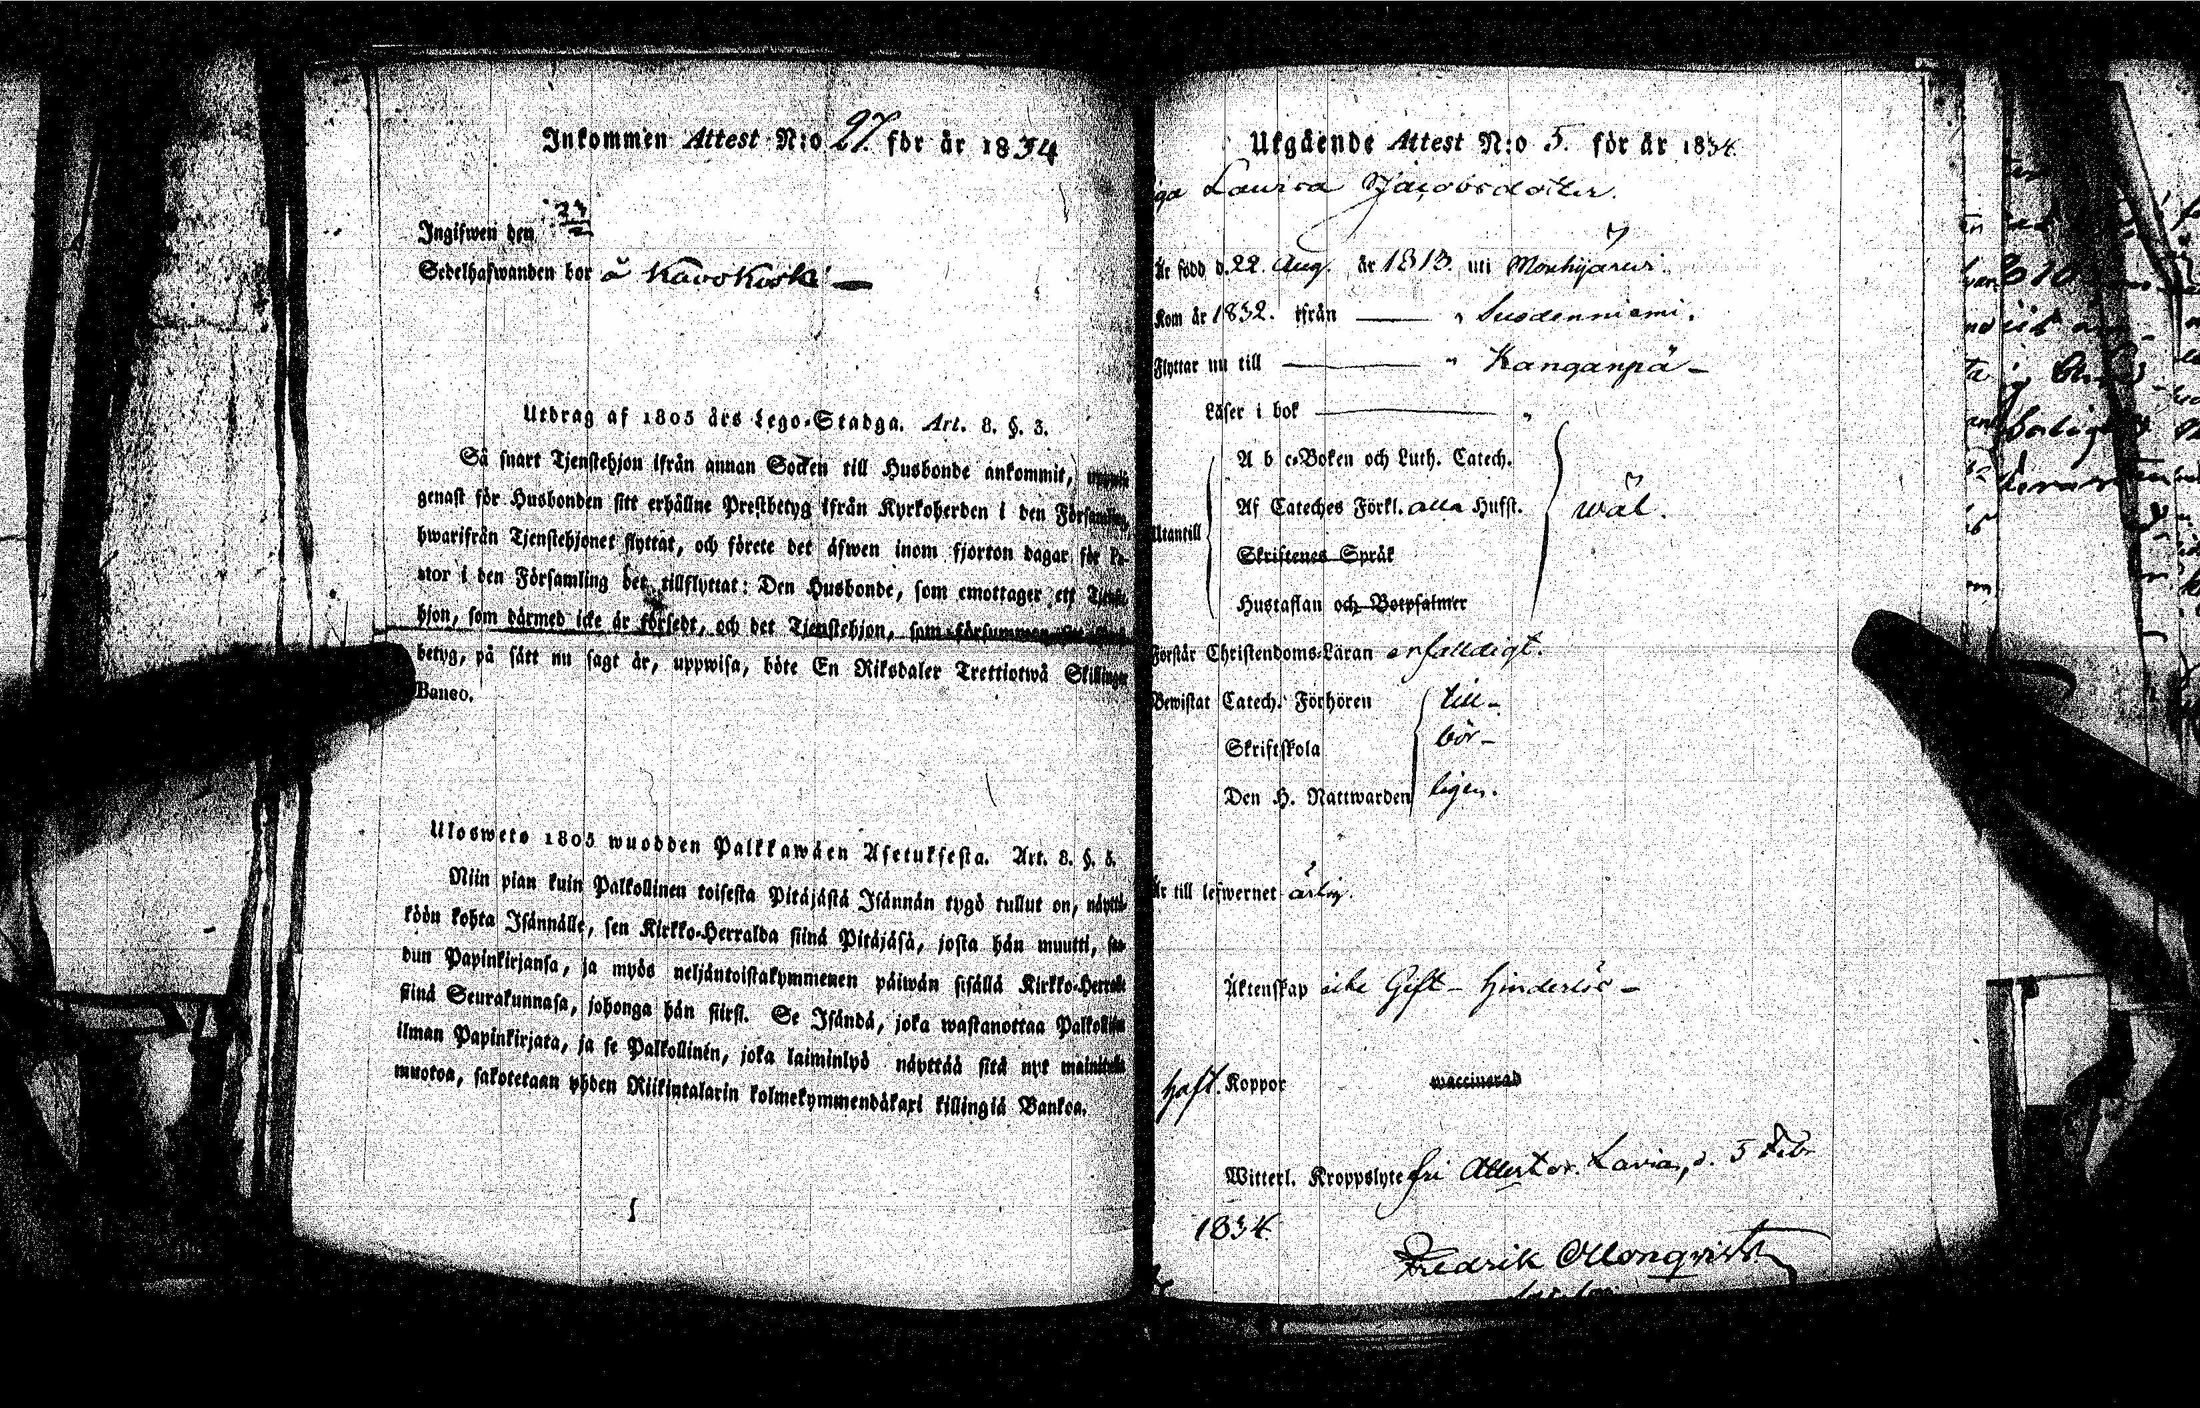 Inkommen Attest N:o 27. för år 1834
Ingifwen den
Sedelhafwanden bor å
Utdrag af 1805 års Lego-Stadga. Art. 8. §. 3.
Så snart Tjenstehjon ifrån annan Socken till Husbonde ankommit,
genast för Husbonden sitt erhållne Prestbetyg ifrån Kyrkoherden i den Församling,
hwarifrån Tjenstehjonet flyttat, och förete det äfwen inom fjorton dagar för
stor i den Församling det tillflyttat: Den Husbonde, som emottager ett
hjon, som därmed icke är försedt, och det Tjenstehjon, som försummar
betyg, på sätt nu sagt är, uppwisa, böte En Riksdaler Trettiotwå Skillingar
Banco.
Ulosweto 1805 wuodden Palkkawäen Asetuksesta. Art. 8. §. 3.
Niin pian kuin Palkollinen toisesta Pitäjästä Isännän tygö tullut on, näyttä-
köön kohta Isännälle, sen Kirkko-Herralda siinä Pitäjäsä, josta hän muutti, saa-
dun Papinkirjansa, ja myös neljäntoistakymmenen päiwän sisällä Kirkko-Herralle
siinä Seurakunnasa, johonga hän siirsi. Se Isändä, joka wastanottaa Palkollisen
ilman Papinkirjata, ja se Palkollinen, joka laiminlyö näyttää sitä nyt mainitulla
muotoa, sakotetaan yhden Riikintalarin kolmekymmendäkaxi killingiä Bankoa.
Utgående Attest N:o 5. för år 1834.
Lovisa Jacobsdotter.
Är född d. 22. Aug. år 1813. uti Mouhijärwi.
Kom år 1832. ifrån — " Suodenniemi.
Flyttar nu till — " Kanganpä —
Läser i bok — "
A b c-Boken och Luth. Catech.
Af Cateches Förkl. alla Hufst.
wäl.
Utantill
Skriftenes Språk
Hustaflan och Botpsalmer
Förstår Christendoms-Läran enfalldigt.
Bewistat Catech. Förhören till-
Skriftskola bör-
Den H. Nattwarden ligen.
Är till lefwernet ärlig.
Äktenskap icke Gift – hinderlös –
haft. Koppor waccinerad
Witterl. Kroppslyte fri Attesterar. Lavia, d. 5 Febr
1834.
Fredrik Ollonqvist